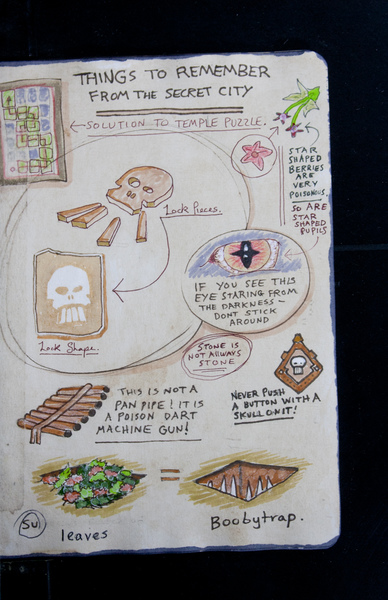 THINGS TO REMEMBER
FROM THE SECRET CITY
SOLUTION TO TEMPLE PUZZLE.
STAR
SHAPED
BERRIES
ARE
VERY
POISONOUS.
SO ARE
STAR
SHAPED
PUPILS
Lock Pieces.
IF YOU SEE THIS
EYE STARING FROM
THE DARKNESS -
DONT STICK
AROUND
Lock Shape.
STONE IS
NOT ALLWAYS
STONE
THIS IS NOT A
PAN PIPE! IT IS
A POISON DART
MACHINE GUN!
NEVER PUSH
A BUTTON WITH A
SKULL ON IT!
=
SU
leaves
Boobytrap.